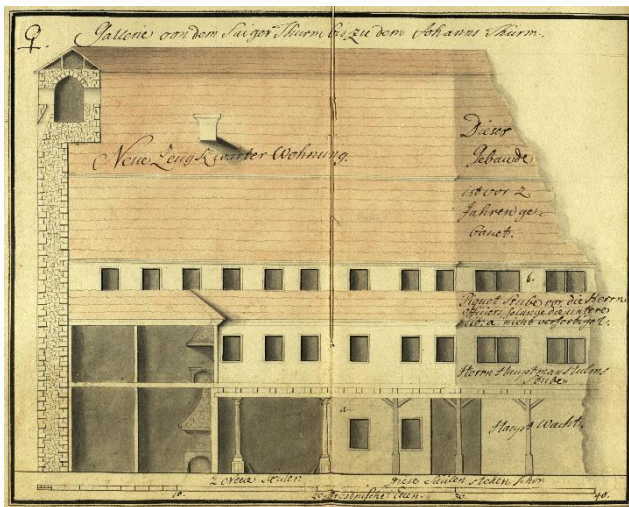 Gallerie von dem Saiger Thurm bis zu dem Johanns Thurm.
Neue Zeugkwarter Wohnung.
Dieser
Gebaude
ist vor 2
Jahren ge-
bauet.
6.
Piquet Stube vor die Herrn
officiers, solange die untere
Lit: a. nicht verfertiget.
Herrn
Stube.
a.
Haupt Wacht.
2 Neue Säulen
Diese Säulen stehen schon
10.
20
30.
40.